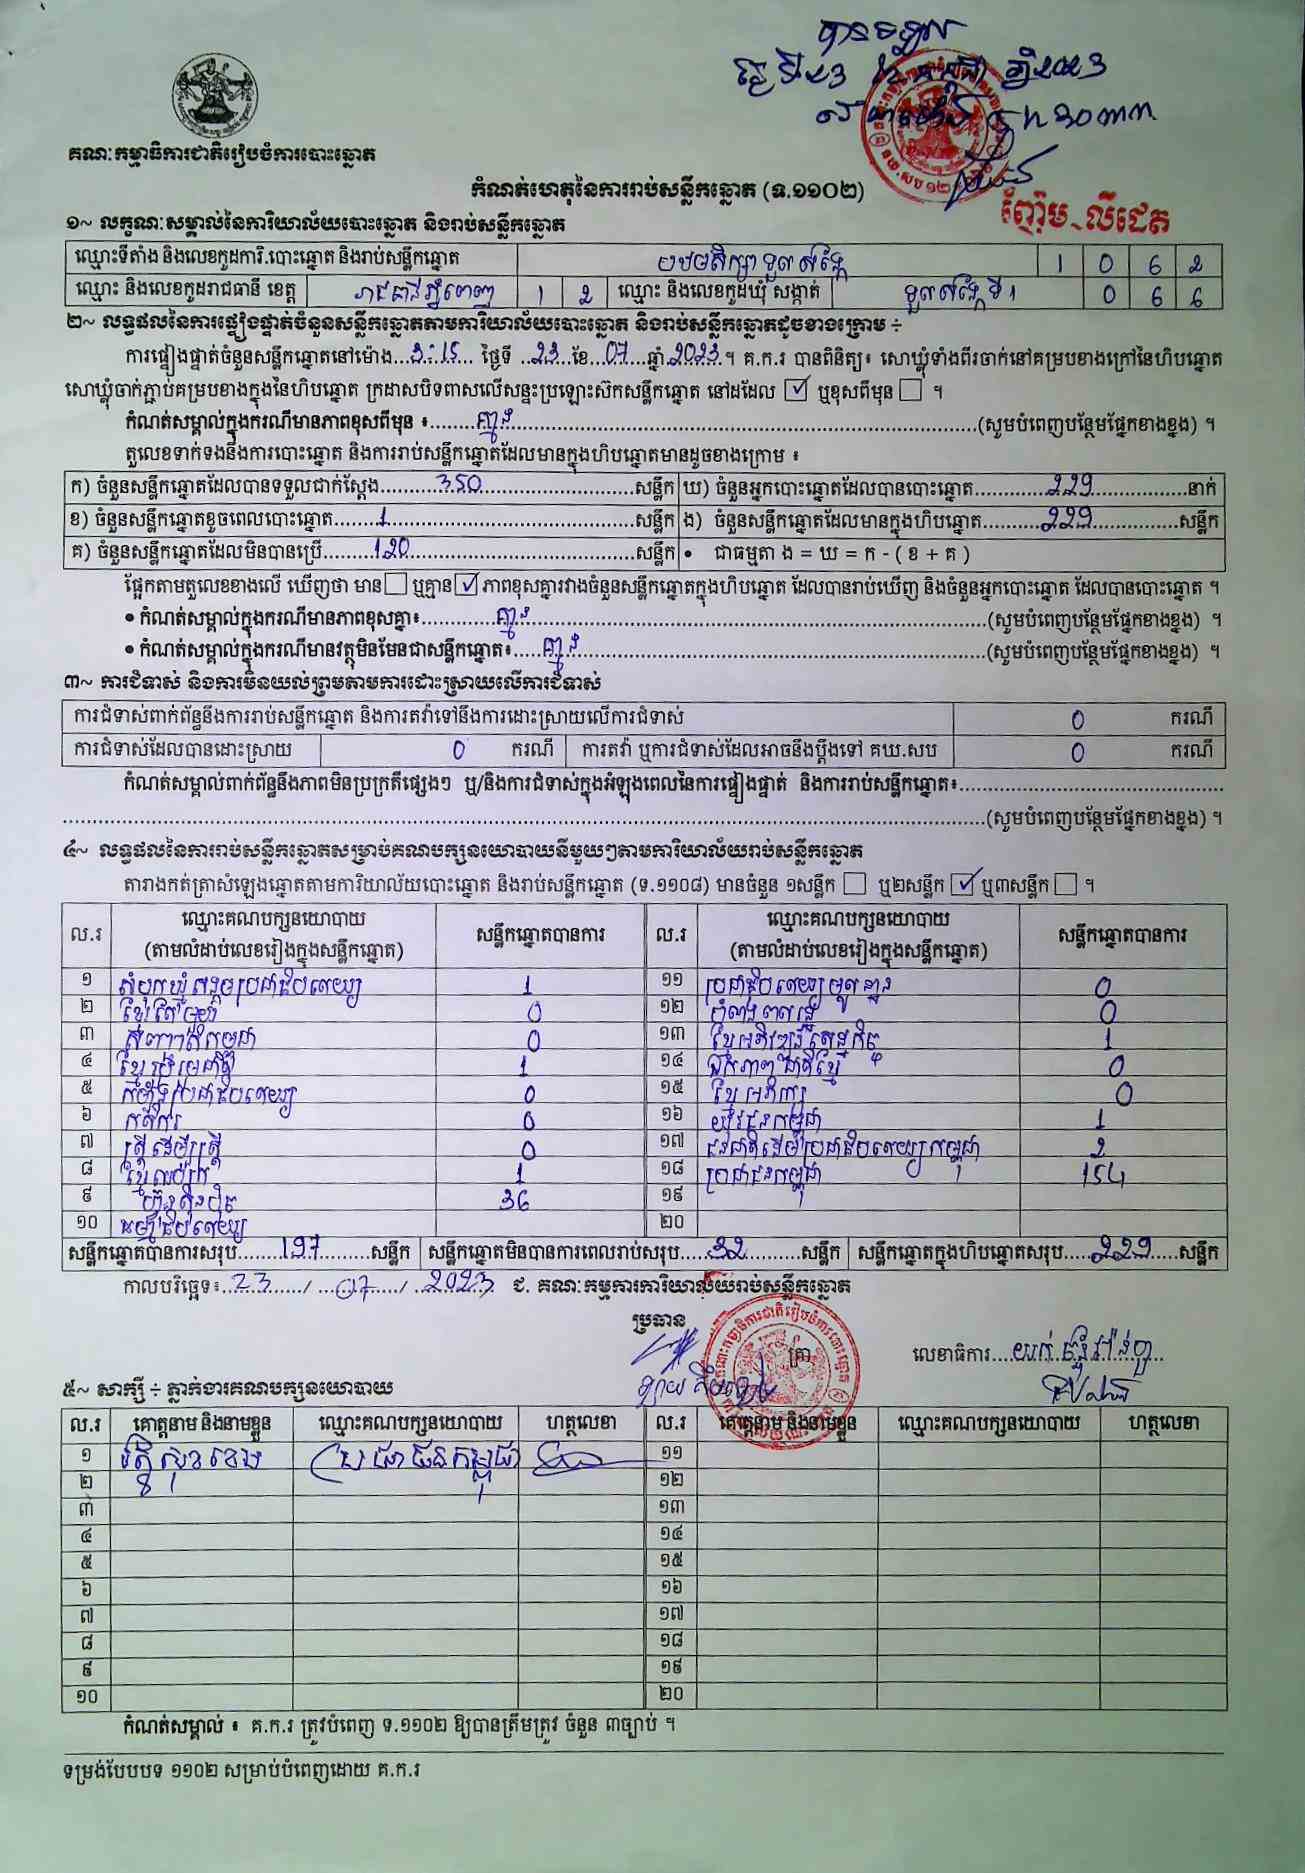 បានទទួល
គណៈកម្មាធិការជាតិរៀបចំការបោះឆ្នោត
កំណត់ហេតុនៃការរាប់សន្លឹកឆ្នោត (ទ.១១០២)
ញ៉ែម លីដេត
១~ លក្ខណៈសម្គាល់នៃការិយាល័យបោះឆ្នោត និងរាប់សន្លឹកឆ្នោត
ឈ្មោះទីតាំង និងលេខកូដការិ.បោះឆ្នោត និងរាប់សន្លឹកឆ្នោត បឋមសិក្សាទួលសង្កែ 1 0 6 2
ឈ្មោះ និងលេខកូដរាជធានី ខេត្ត រាជធានីភ្នំពេញ 1 2 ឈ្មោះ និងលេខកូដឃុំ សង្កាត់ ទួលសង្កែទី1 0 6 6
២~ លទ្ធផលនៃការផ្ទៀងផ្ទាត់ចំនួនសន្លឹកឆ្នោតតាមការិយាល័យបោះឆ្នោត និងរាប់សន្លឹកឆ្នោតដូចខាងក្រោម ÷
ការផ្ទៀងផ្ទាត់ចំនួនសន្លឹកឆ្នោតនៅម៉ោង...3:15... ថ្ងៃទី ..23..ខែ..07..ឆ្នាំ.2023.។ គ.ក.រ បានពិនិត្យ៖ សោឃ្លុំទាំងពីរចាក់នៅគម្របខាងក្រៅនៃហិបឆ្នោត
សោឃ្លុំចាក់ភ្ជាប់គម្របខាងក្នុងនៃហិបឆ្នោត ក្រដាសបិទពាសលើសន្ទះប្រឡោះស៊កសន្លឹកឆ្នោត នៅដដែល ☑ ឬខុសពីមុន ☐ ។
កំណត់សម្គាល់ក្នុងករណីមានភាពខុសពីមុន ៖........គ្មាន........(សូមបំពេញបន្ថែមផ្នែកខាងខ្នង) ។
តួលេខទាក់ទងនឹងការបោះឆ្នោត និងការរាប់សន្លឹកឆ្នោតដែលមានក្នុងហិបឆ្នោតមានដូចខាងក្រោម ៖
ក) ចំនួនសន្លឹកឆ្នោតដែលបានទទួលជាក់ស្តែង........350........សន្លឹក ឃ) ចំនួនអ្នកបោះឆ្នោតដែលបានបោះឆ្នោត........229........នាក់
ខ) ចំនួនសន្លឹកឆ្នោតខូចពេលបោះឆ្នោត........1........សន្លឹក ង) ចំនួនសន្លឹកឆ្នោតដែលមានក្នុងហិបឆ្នោត........229........សន្លឹក
គ) ចំនួនសន្លឹកឆ្នោតដែលមិនបានប្រើ........120........សន្លឹក • ជាធម្មតា ង = ឃ = ក - ( ខ + គ )
ផ្អែកតាមតួលេខខាងលើ ឃើញថា មាន ☐ ឬគ្មាន ☑ ភាពខុសគ្នារវាងចំនួនសន្លឹកឆ្នោតក្នុងហិបឆ្នោត ដែលបានរាប់ឃើញ និងចំនួនអ្នកបោះឆ្នោត ដែលបានបោះឆ្នោត ។
• កំណត់សម្គាល់ក្នុងករណីមានភាពខុសគ្នា៖........គ្មាន........(សូមបំពេញបន្ថែមផ្នែកខាងខ្នង) ។
• កំណត់សម្គាល់ក្នុងករណីមានវត្ថុមិនមែនជាសន្លឹកឆ្នោត៖.....គ្មាន........(សូមបំពេញបន្ថែមផ្នែកខាងខ្នង) ។
៣~ ការជំទាស់ និងការមិនយល់ព្រមតាមការដោះស្រាយលើការជំទាស់
ការជំទាស់ពាក់ព័ន្ធនឹងការរាប់សន្លឹកឆ្នោត និងការតវ៉ាទៅនឹងការដោះស្រាយលើការជំទាស់ 0 ករណី
ការជំទាស់ដែលបានដោះស្រាយ 0 ករណី ការតវ៉ា ឬការជំទាស់ដែលអាចនឹងប្តឹងទៅ គឃ.សប 0 ករណី
កំណត់សម្គាល់ពាក់ព័ន្ធនឹងភាពមិនប្រក្រតីផ្សេងៗ ឬ/និងការជំទាស់ក្នុងអំឡុងពេលនៃការផ្ទៀងផ្ទាត់ និងការរាប់សន្លឹកឆ្នោត៖........
........(សូមបំពេញបន្ថែមផ្នែកខាងខ្នង) ។
៤~ លទ្ធផលនៃការរាប់សន្លឹកឆ្នោតសម្រាប់គណបក្សនយោបាយនីមួយៗតាមការិយាល័យរាប់សន្លឹកឆ្នោត
តារាងកត់ត្រាសំឡេងឆ្នោតតាមការិយាល័យបោះឆ្នោត និងរាប់សន្លឹកឆ្នោត (ទ.១១០៨) មានចំនួន ១សន្លឹក ☐ ឬ២សន្លឹក ☑ ឬ៣សន្លឹក ☐ ។
ល.រ ឈ្មោះគណបក្សនយោបាយ (តាមលំដាប់លេខរៀងក្នុងសន្លឹកឆ្នោត) សន្លឹកឆ្នោតបានការ ល.រ ឈ្មោះគណបក្សនយោបាយ (តាមលំដាប់លេខរៀងក្នុងសន្លឹកឆ្នោត) សន្លឹកឆ្នោតបានការ
១ សំបុកឃ្មុំសង្គមប្រជាធិបតេយ្យ 1 ១១ ប្រជាធិបតេយ្យមូលដ្ឋាន 0
២ ខ្មែរតែមួយ 0 ១២ កម្លាំងពលរដ្ឋ 0
៣ សញ្ជាតិកម្ពុជា 0 ១៣ ខ្មែរអភិវឌ្ឍន៍សេដ្ឋកិច្ច 1
៤ ខ្មែររួបរួមជាតិ 1 ១៤ ឯកភាពជាតិខ្មែរ 0
៥ កម្លាំងប្រជាធិបតេយ្យ 0 ១៥ ខ្មែរអភិរក្ស 0
៦ កសិករ 0 ១៦ យុវជនកម្ពុជា 1
៧ ស្ត្រីដើម្បីស្ត្រី 0 ១៧ ជនជាតិដើមប្រជាធិបតេយ្យកម្ពុជា 2
៨ ខ្មែរឈប់ក្រ 1 ១៨ ប្រជាជនកម្ពុជា 154
៩ ហ៊្វុនស៊ិនប៉ិច 36 ១៩
១០ ធម្មាធិបតេយ្យ ២០
សន្លឹកឆ្នោតបានការសរុប........197........សន្លឹក សន្លឹកឆ្នោតមិនបានការពេលរាប់សរុប.....32........សន្លឹក សន្លឹកឆ្នោតក្នុងហិបឆ្នោតសរុប.....229.....សន្លឹក
កាលបរិច្ឆេទ៖...23.../...07.../...2023... ជ. គណៈកម្មការការិយាល័យរាប់សន្លឹកឆ្នោត
ប្រធាន
ត្រា
លេខាធិការ....
៥~ សាក្សី ÷ ភ្នាក់ងារគណបក្សនយោបាយ
ល.រ គោត្តនាម និងនាមខ្លួន ឈ្មោះគណបក្សនយោបាយ ហត្ថលេខា ល.រ គោត្តនាម និងនាមខ្លួន ឈ្មោះគណបក្សនយោបាយ ហត្ថលេខា
១ ប្រជាជនកម្ពុជា ១១
២ ១២
៣ ១៣
៤ ១៤
៥ ១៥
៦ ១៦
៧ ១៧
៨ ១៨
៩ ១៩
១០ ២០
កំណត់សម្គាល់ ៖ គ.ក.រ ត្រូវបំពេញ ទ.១១០២ ឱ្យបានត្រឹមត្រូវ ចំនួន ៣ច្បាប់ ។
ទម្រង់បែបបទ ១១០២ សម្រាប់បំពេញដោយ គ.ក.រ